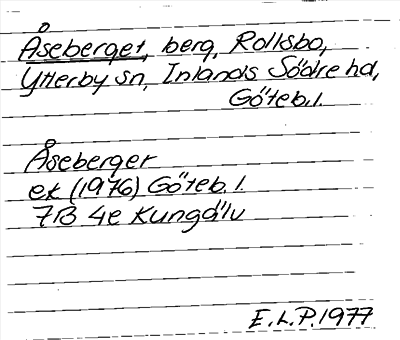 Åseberget, berg, Rollsbo,
Ytterby sn, Inlands Södre hd,
Göteb. l.
Åseberger
ek (1976) Göteb. l.
7B 4e Kungälv
E.L.P. 1977